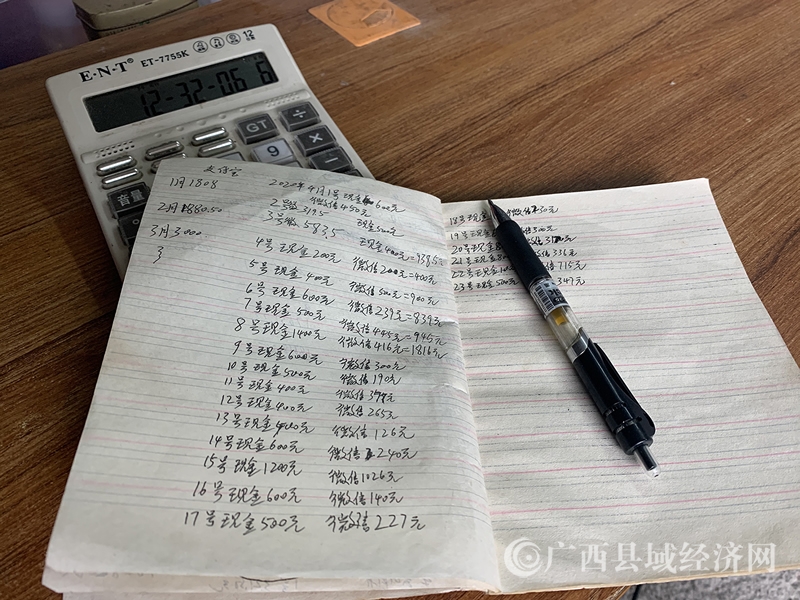 E·N·T® ET-7755K
12
12-32-06 6
GT
÷
9
×
−
音量
支付宝
1月1808
2月1880.50
3月3000
2020年4月1号现金600元
2号 319.5 微信450元
3号微583.5 现金500元
4号现金200元 现金400元=938.5元
5号现金400元 微信200元=400元
6号现金600元 微信500元=900元
7号现金500元 微信239元=839元
8号现金1400元 微信445元=945元
微信416元=1816元
9号现金600元 微信300元
10号现金500元 微信190元
11号现金400元
12号现金400元 微信265元
13号现金400元 微信126元
14号现金600元 微信240元
15号现金1200元 微信1026元
16号现金600元 微信140元
17号现金500元 微信227元
18号现金 微信 30元
19号现金 微信300元
20号现金
21号现金 微信336元
22号现金 微信715元
23号现金500元 349元
广西县域经济网